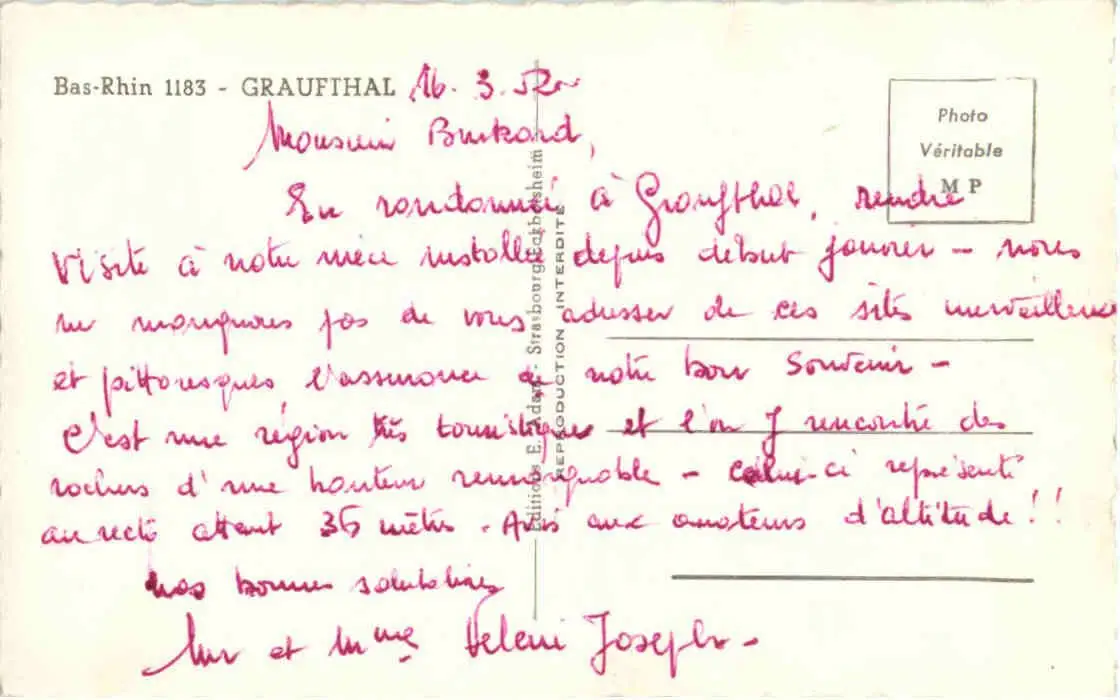 Bas-Rhin 1183 - GRAUFTHAL 16. 3. 52
Monsieur Burkard,
En randonnée à Graufthal, rendre
visite à notre nièce installée depuis début janvier - nous
ne manquons pas de vous adresser de ces sites merveilleux
et pittoresques, l'assurance de notre bon souvenir -
C'est une région très touristique et l'on y rencontre des
rochers d'une hauteur remarquable - celui-ci représenté
au recto atteint 36 mètres. Avis aux amateurs d'altitude!!
nos bonnes salutations
Mr et Mme Joseph -
Photo
Véritable
M P
Editions E. Adam - Strasbourg-Eckbolsheim
REPRODUCTION INTERDITE